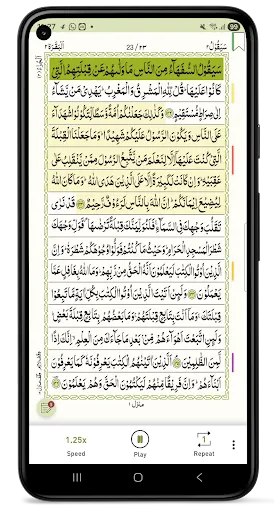 البقرة ٢
23 / ٢٣
سيقول ٢
سَيَقُوْلُ السُّفَهَآءُ مِنَ النَّاسِ مَا وَلّٰىهُمْ عَنْ قِبْلَتِهِمُ الَّتِيْ
كَانُوْا عَلَيْهَا قُلْ لِّلّٰهِ الْمَشْرِقُ وَالْمَغْرِبُ يَهْدِيْ مَنْ يَّشَآءُ
اِلٰى صِرَاطٍ مُّسْتَقِيْمٍ وَكَذٰلِكَ جَعَلْنٰكُمْ اُمَّةً وَّسَطًا لِّتَكُوْنُوْا شُهَدَآءَ
عَلَى النَّاسِ وَيَكُوْنَ الرَّسُوْلُ عَلَيْكُمْ شَهِيْدًا وَمَا جَعَلْنَا الْقِبْلَةَ
الَّتِيْ كُنْتَ عَلَيْهَآ اِلَّا لِنَعْلَمَ مَنْ يَّتَّبِعُ الرَّسُوْلَ مِمَّنْ يَّنْقَلِبُ عَلٰى
عَقِبَيْهِ وَاِنْ كَانَتْ لَكَبِيْرَةً اِلَّا عَلَى الَّذِيْنَ هَدَى اللّٰهُ وَمَا كَانَ اللّٰهُ
لِيُضِيْعَ اِيْمَانَكُمْ اِنَّ اللّٰهَ بِالنَّاسِ لَرَءُوْفٌ رَّحِيْمٌ قَدْ نَرٰى
تَقَلُّبَ وَجْهِكَ فِي السَّمَآءِ فَلَنُوَلِّيَنَّكَ قِبْلَةً تَرْضٰىهَا فَوَلِّ وَجْهَكَ
شَطْرَ الْمَسْجِدِ الْحَرَامِ وَحَيْثُ مَا كُنْتُمْ فَوَلُّوْا وُجُوْهَكُمْ شَطْرَهٗ وَاِنَّ
الَّذِيْنَ اُوْتُوا الْكِتٰبَ لَيَعْلَمُوْنَ اَنَّهُ الْحَقُّ مِنْ رَّبِّهِمْ وَمَا اللّٰهُ بِغَافِلٍ عَمَّا
يَعْمَلُوْنَ وَلَئِنْ اَتَيْتَ الَّذِيْنَ اُوْتُوا الْكِتٰبَ بِكُلِّ اٰيَةٍ مَّا تَبِعُوْا
قِبْلَتَكَ وَمَآ اَنْتَ بِتَابِعٍ قِبْلَتَهُمْ وَمَا بَعْضُهُمْ بِتَابِعٍ قِبْلَةَ بَعْضٍ
وَلَئِنِ اتَّبَعْتَ اَهْوَآءَهُمْ مِّنْ بَعْدِ مَا جَآءَكَ مِنَ الْعِلْمِ اِنَّكَ اِذًا
لَّمِنَ الظّٰلِمِيْنَ اَلَّذِيْنَ اٰتَيْنٰهُمُ الْكِتٰبَ يَعْرِفُوْنَهٗ كَمَا يَعْرِفُوْنَ
اَبْنَآءَهُمْ وَاِنَّ فَرِيْقًا مِّنْهُمْ لَيَكْتُمُوْنَ الْحَقَّ وَهُمْ يَعْلَمُوْنَ
منزل ١
1.25x
1
Speed
Play
Repeat